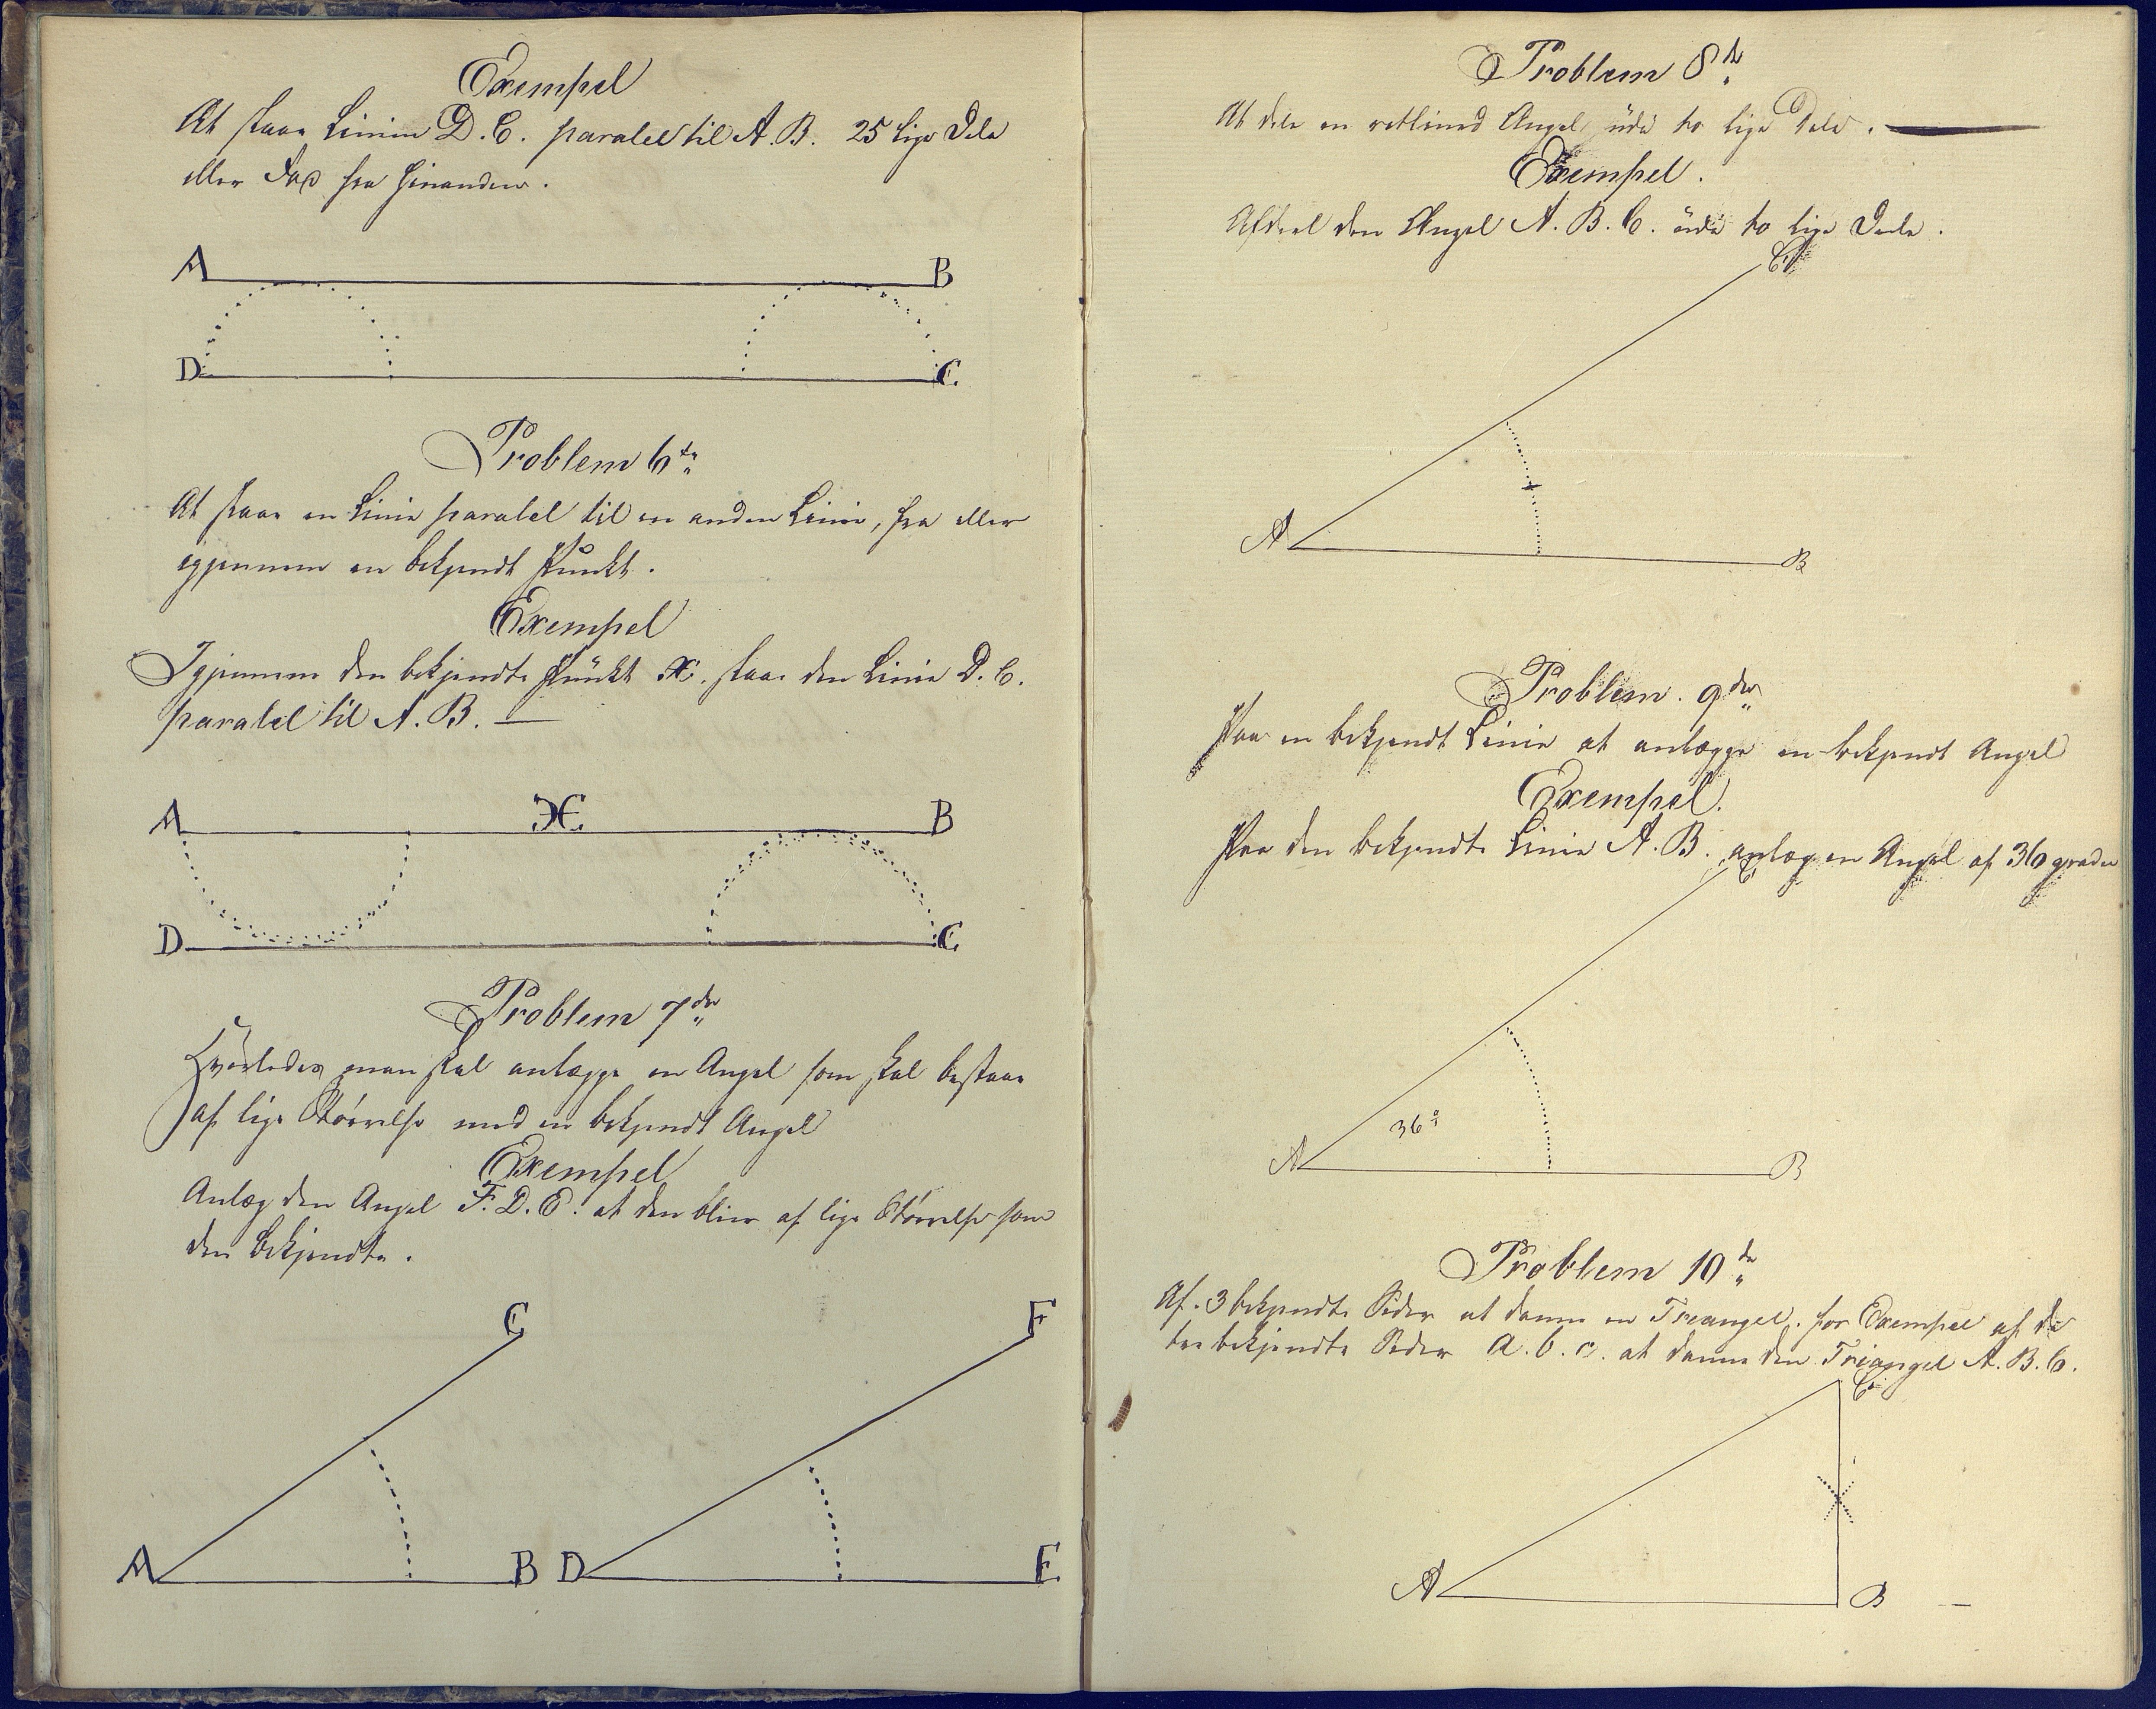 Exempel
At staae Linien D. C. paralel til A. B. 25 lige Dele
eller Fod fra hinanden.
A B
D C
Problem 6te
At staae en Linie paralel til en anden Linie, fra eller
igjennem en bekjendt Punkt.
Exempel
Igjennem den bekjendte Punkt X. staae den Linie D. C.
paralel til A. B. —
A X B
D C
Problem 7de
Hvorledes man skal anlægge en Angel som skal bestaae
af lige Størrelse med en bekjendt Angel
Exempel
Anlæg den Angel F. D. E. at den bliver af lige Størrelse som
den bekjendte.
C F
A B D E
Problem 8de
At dele en retlined Angel udi to lige Dele. —
Exempel.
Afdeel den Angel A. B. C. udi to lige Deele.
C
A B
Problem. 9de
Paa en bekjendt Linie at anlægge en bekjendt Angel
Exempel.
Paa den bekjendte Linie A. B. anlæg en Angel af 36 grader
C
36°
A B
Problem 10de
Af 3 bekjendte Sider at danne en Treangel. for Exempel af de
tre bekjendte Sider a. b. c. at danne den Triangel A. B. C.
C
A B —